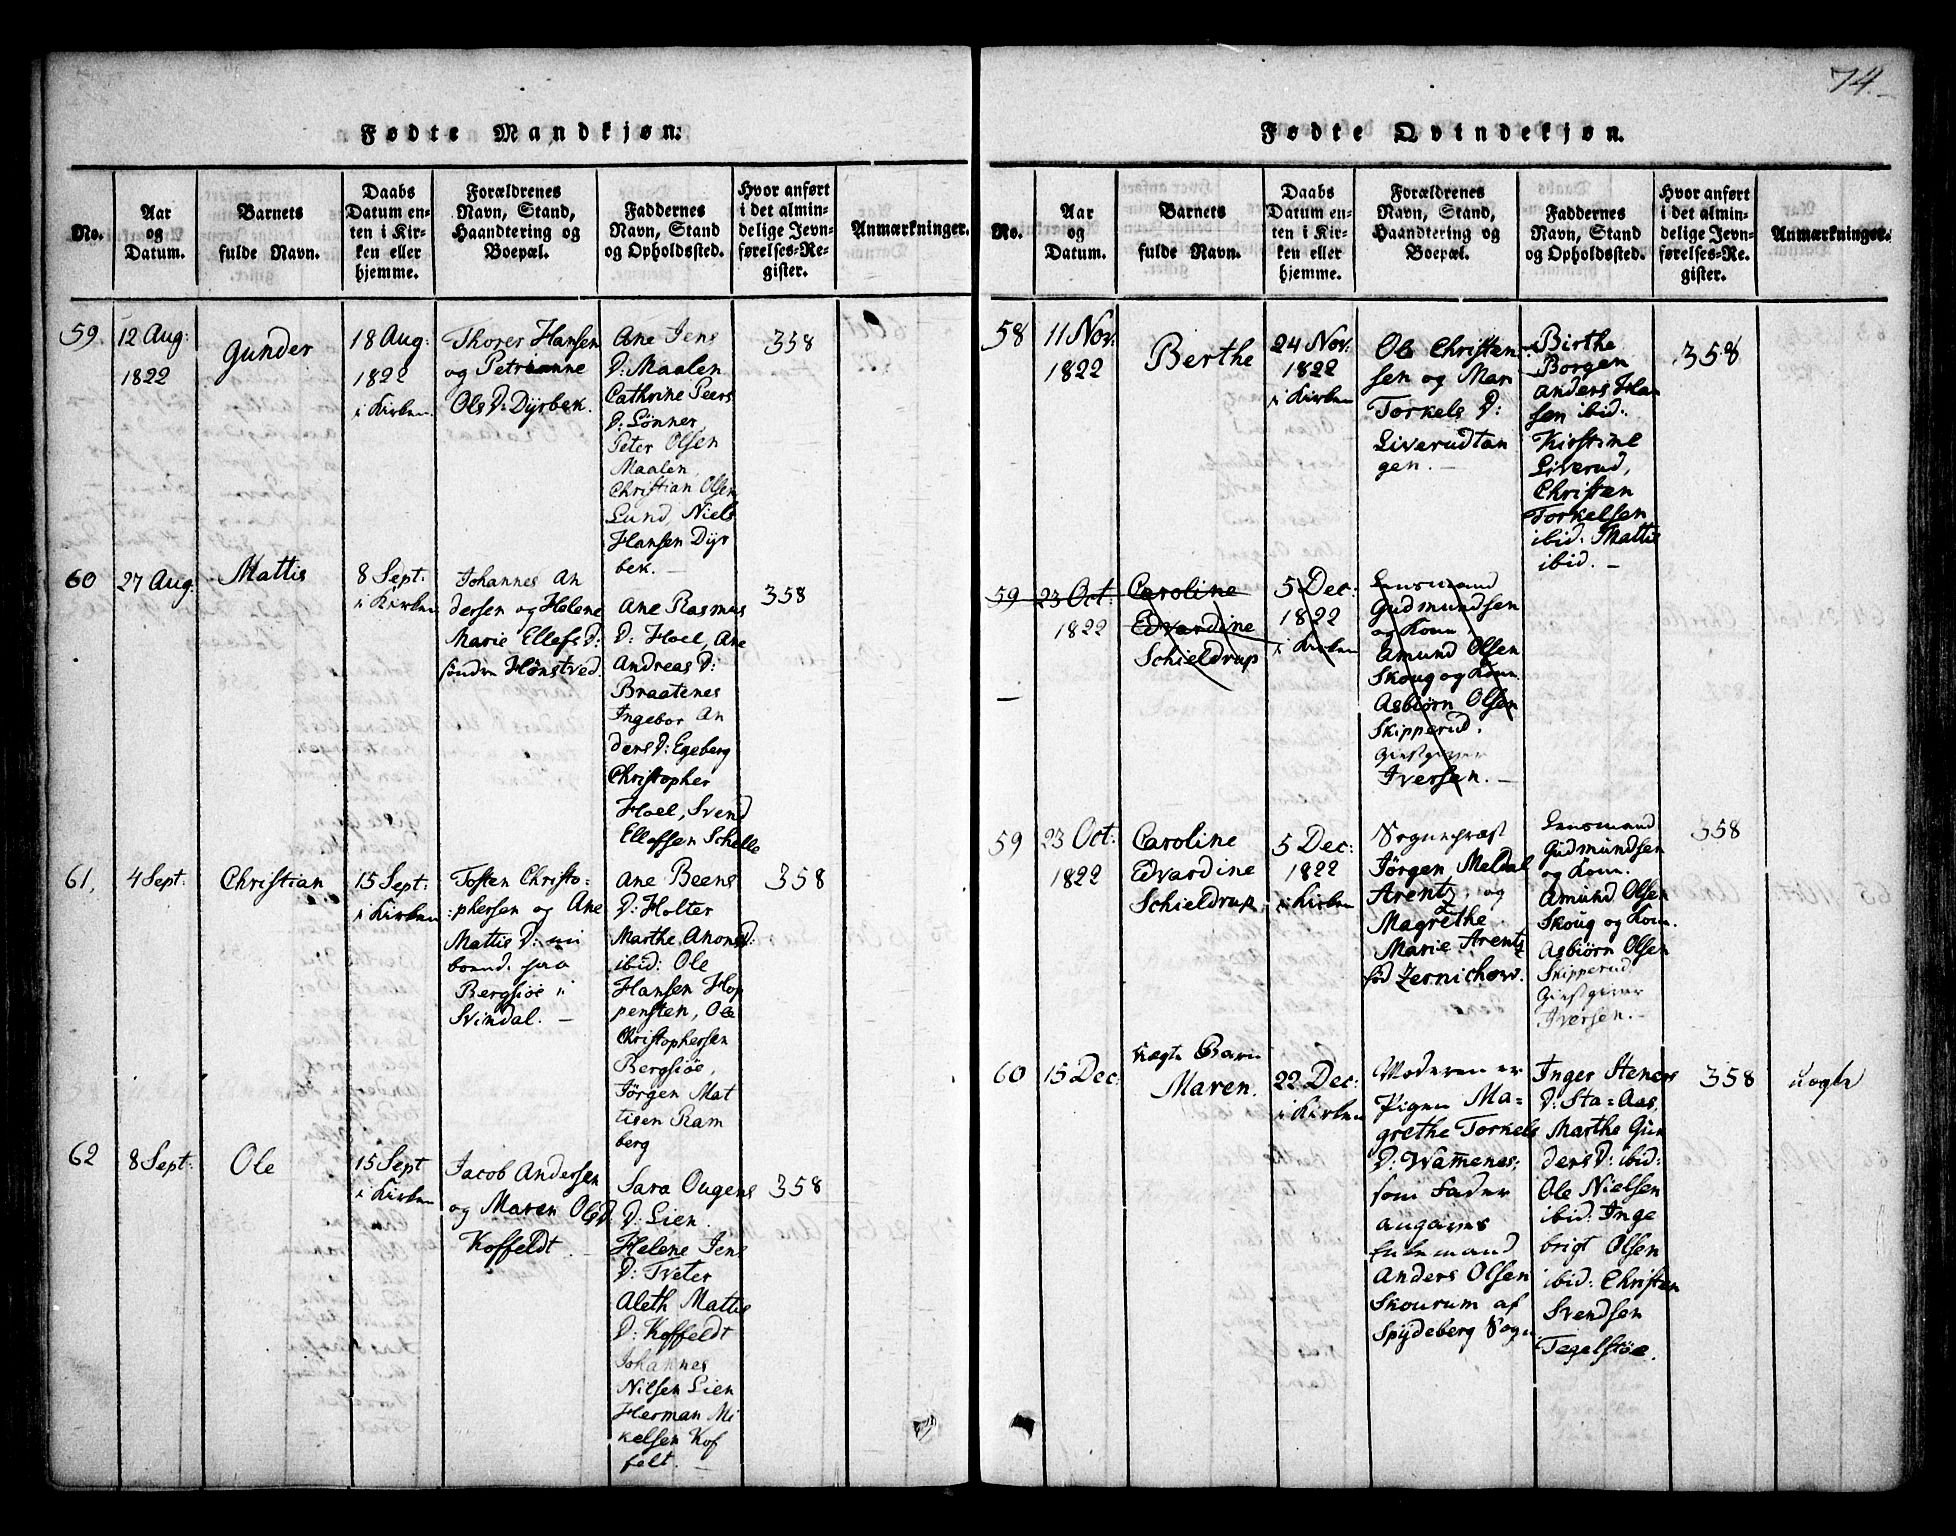 74.
Fødte Mandkjøn.
No.
Aar
og
Datum.
Barnets
fulde Navn.
Daabs
Datum en-
ten i Kir-
ken eller
hjemme.
Forældrenes
Navn, Stand,
Haandtering og
Boepæl.
Faddernes
Navn, Stand
og Opholdssted.
Hvor anført
i det almin-
delige Jevn-
førelses-Re-
gister.
Anmærkninger.
59.
12 Aug:
1822
Gunder
18 Aug:
1822
i Kirken
Thorer Hansen
og Petrianne
Ols D: Dyrbek.
Ane Jens
D: Maalen
Cathrine Peers
D: Lønner
Peter Olsen
Maalen
Christian Olsen
Lund, Niels
Hansen Dyr
bek.
358
60
27 Aug:
Mattis
8 Sept:
i Kirken
Johannes An
dersen og Helene
Marie Ellefs D:
søndre Hønstved.
Ane Rasmus
D: Hoel, Ane
Andreas D:
Braatenes
Ingebor An
ders D: Egeberg
Christopher
Hoel, Svend
Ellefsen Schelle
358
61.
4 Sept:
Christian
15 Sept:
i Kirken
Tosten Christo-
phersen og Ane
Mattis D:
paa
Bergsiøe i
Svindal.
Ane Beens
D: Holter
Marthe Anons D:
ibid: Ole
Hansen Hop
pensten, Ole
Christophersen
Bergsiøe,
Jørgen Mat
tisen Ram
berg
358
62
8 Sept:
Ole
15 Sept
i Kirken
Jacob Andersen
og Maren Ols D.
Koffeldt.
Sara Ougens
D: Lien.
Helene Jens
D: Tveter
Aleth Mattis
D: Koffeldt
Johannes
Nilsen Lien
Herman Mi
kelsen Kof
felt.
358
Fødte Qvindekjøn.
No.
Aar
og
Datum.
Barnets
fulde Navn.
Daabs
Datum en-
ten i Kir-
ken eller
hjemme.
Forældrenes
Navn, Stand,
Haandtering og
Boepæl.
Faddernes
Navn, Stand
og Opholdssted.
Hvor anført
i det almin-
delige Jevn-
førelses-Re-
gister.
Anmærkninger.
58
11 Nov:
1822
Berthe
24 Nov:
1822
i Kirken
Ole Christen
sen og Mari
Torkels D:
Liverudtan
gen.
Birthe
Borgen
Anders Han
sen ibid:
Kirstine
Liverud,
Christen
Torkelsen
ibid: Mattis
ibid.
358
59
23 Oct:
1822
Caroline
Edvardine
Schieldrup
5 Dec:
1822
i Kirken
Lensmand
Gudmundsen
og Kone.
Amund Olsen
Skoug og Kone
Asbiørn Olsen
Skipperud.
Giestgiver
Iversen.
59
23 Oct:
1822
Caroline
Edvardine
Schieldrup
5 Dec:
1822
i Kirken
Sognepræst
Jørgen Meldal
Arentz og
Magrethe
Marie Arentz
fød Zernichow.
Lensmand
Gudmundsen
og Kone.
Amund Olsen
Skoug og Kone.
Asbiørn Olsen
Skipperud
Giestgiver
Iversen.
358
60
15 Dec:
uægte Barn
Maren.
22 Dec:
i Kirken
Moderen er
Pigen Ma-
grethe Torkels
D: Wamenes:
som Fader
angaves
Enkemand
Anders Olsen
Skourum af
Spydeberg Sogn
Inger Steners
D: Sta=Aas,
Marthe Gun
ders D: ibid:
Ole Nielsen
ibid: Inge
brigt Olsen
ibid: Christen
Svendsen
Tegelstøe.
358
uægte